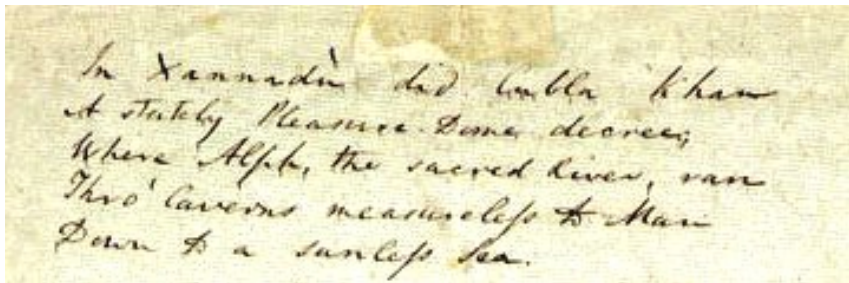 In Xannadù did Cubla Khan
A stately Pleasure-Dome decree;
Where Alph, the sacred River, ran
Thro' Caverns measureless to Man
Down to a sunless Sea.